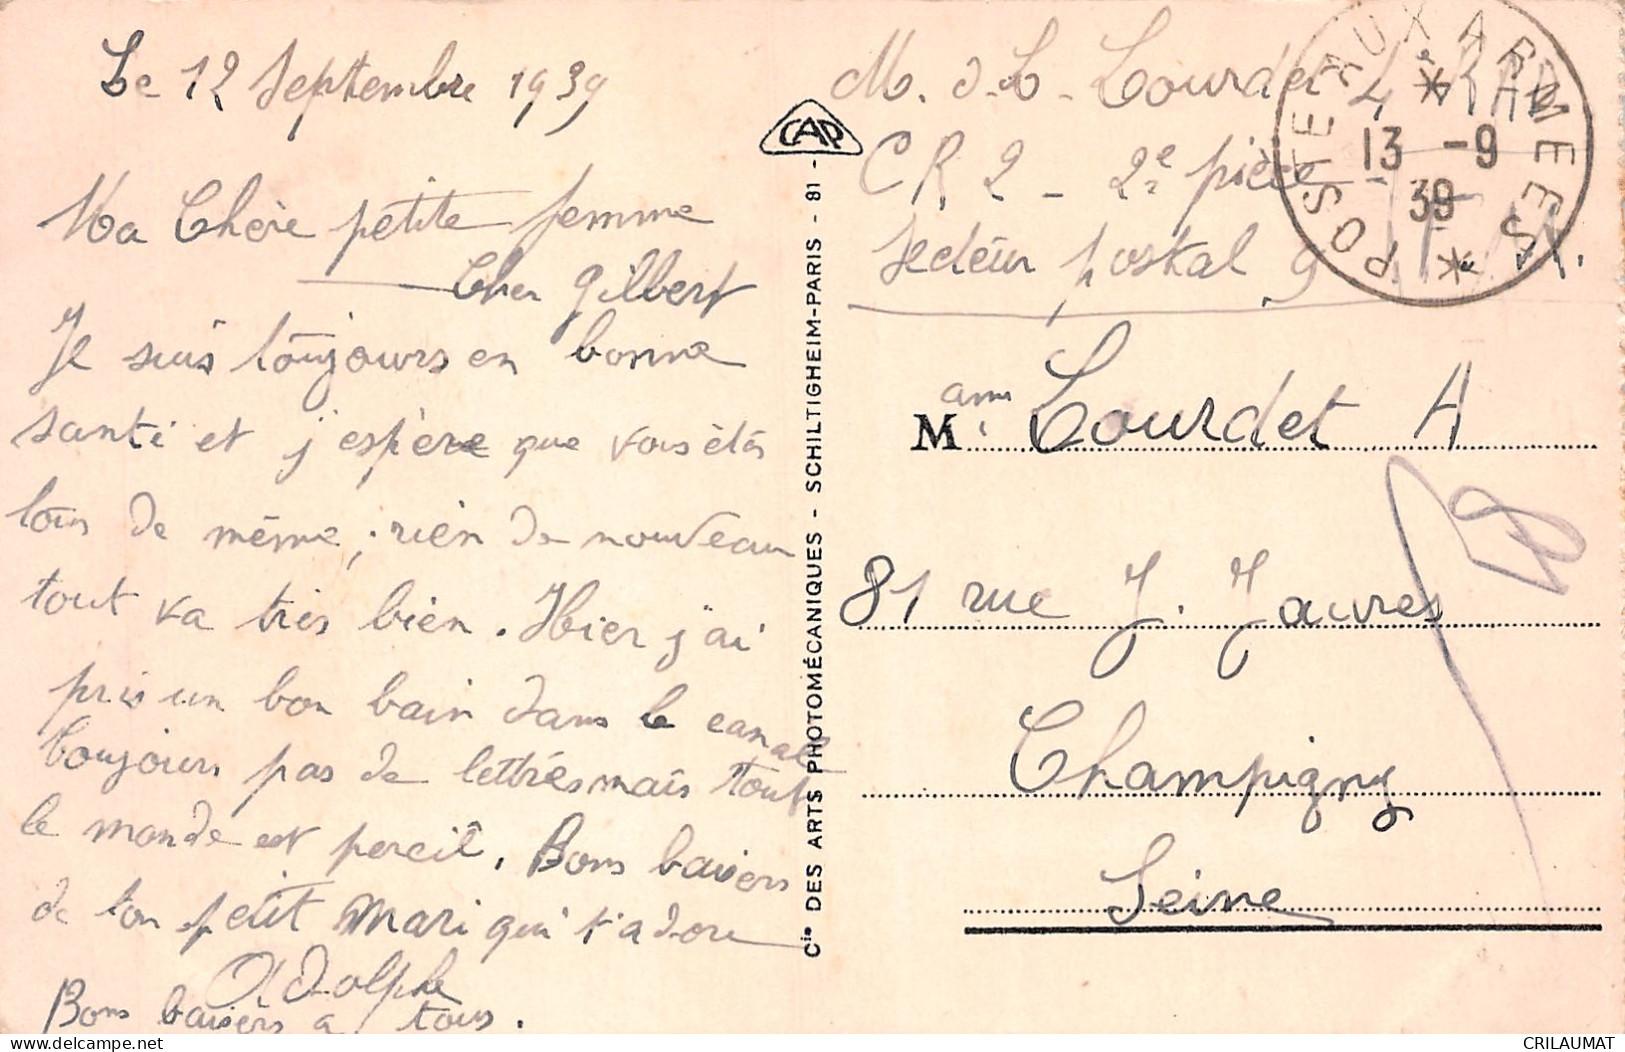 Le 12 Septembre 1939
Ma Chère petite femme
Cher Gilbert
Je suis toujours en bonne
santé et j'espère que vous êtes
tous de même, rien de nouveau
tout va très bien. Hier j'ai
pris un bon bain dans le canal
Toujours pas de lettres mais tout
le monde est pareil. Bons baisers
de ton petit Mari qui t'adore
Adolphe
Bons baisers a tous.
CAP
Cie DES ARTS PHOTOMÉCANIQUES - SCHILTIGHEIM-PARIS - 81 -
M. d. L. Lourdet
CR 2 - 2e pièce
Secteur postal 9
POSTE AUX ARMEES
13 -9
39
Mme Lourdet A
81 rue J. Jaures
Champigny
Seine
CRILAUMAT